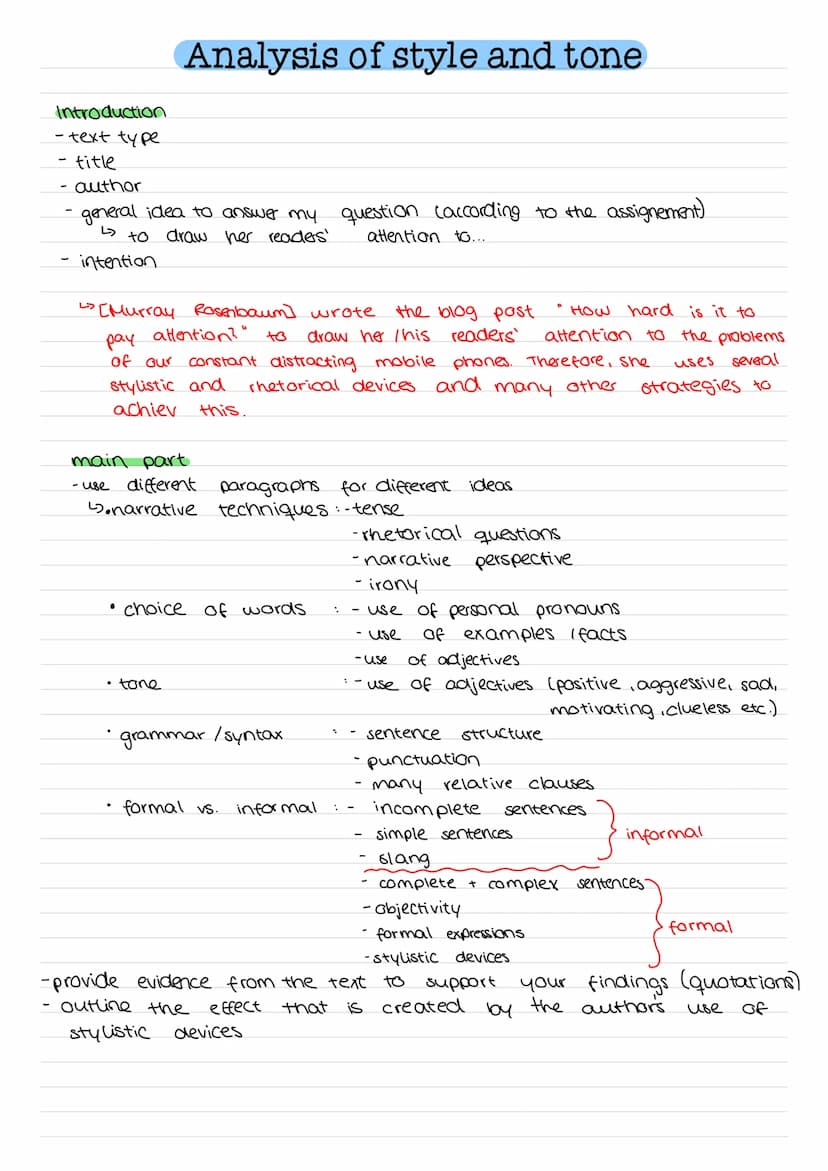 Analysis of style and tone
Introduction
- text type
- title
- author
- general idea to answer my question (according to the assignement)
↳ to draw her readers' attention to...
- intention
↳ [Murray Rosenbaum] wrote the blog post "How hard is it to
pay attention?" to draw her/his readers' attention to the problems
of our constant distracting mobile phones. Therefore, she uses several
stylistic and rhetorical devices and many other strategies to
achiev this.
main part
- use different paragraphs for different ideas
↳ • narrative techniques : - tense
- rhetorical questions
- narrative perspective
- irony
• choice of words : - use of personal pronouns
- use of examples / facts
- use of adjectives
• tone : - use of adjectives (positive, aggressive, sad,
motivating, clueless etc.)
• grammar / syntax : - sentence structure
- punctuation
- many relative clauses
• formal vs. informal : - incomplete sentences
- simple sentences informal
- slang
- complete + complex sentences
- objectivity
- formal expressions formal
- stylistic devices
- provide evidence from the text to support your findings (quotations)
- outline the effect that is created by the author's use of
stylistic devices